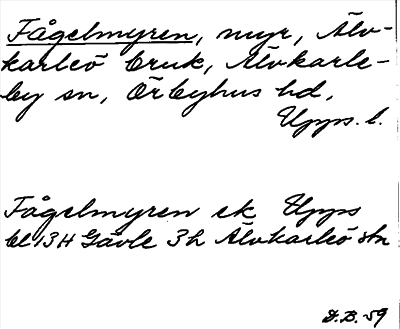 Fågelmyren, myr, Älv-
karleö bruk, Älvkarle-
by sn, Örbyhus hd,
Upps. l.
Fågelmyren ek Upps
bl 13H Gävle 3h Älvkarleö stn
D.B. 59